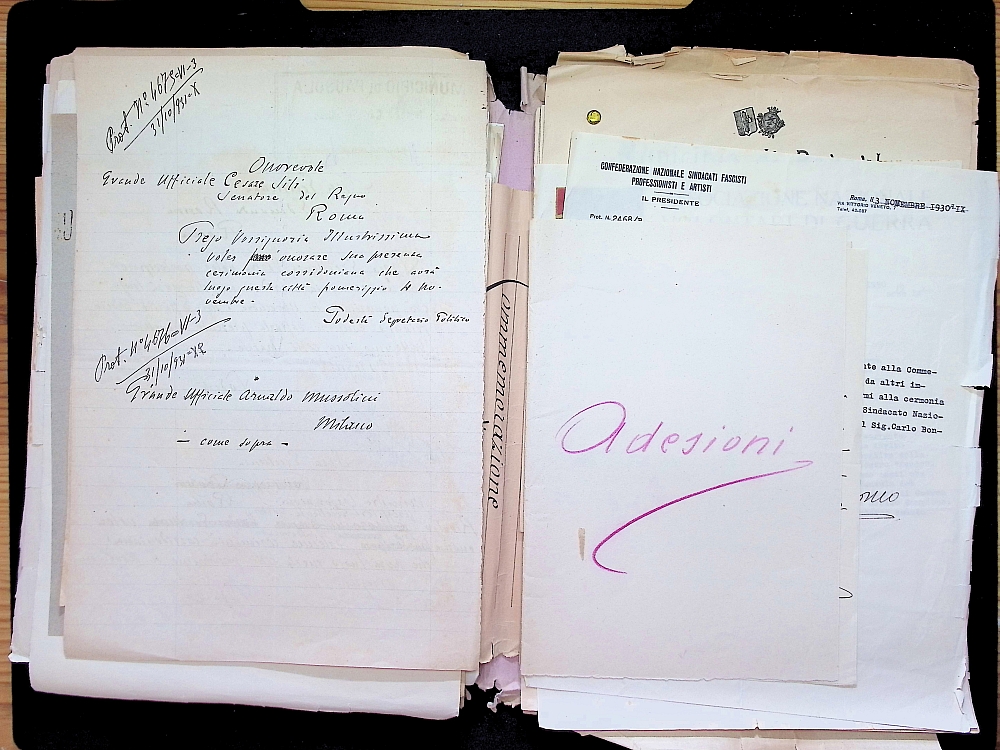 Prot. N° 4675=VI-3
31/10/931=X
Onorevole
Grande Ufficiale Cesare Sili
Senatore del Regno
Roma
Prego Vossignoria Illustrissima
voler onorare sua presenza
cerimonia corridoniana che avrà
luogo questa città pomeriggio 4 no-
vembre -
Podestà Segretario Politico
Prot. N° 4676=VI-3
31/10/931=X
Grande Ufficiale Arnaldo Mussolini
Milano
— come sopra —
Commemorazione
CONFEDERAZIONE NAZIONALE SINDACATI FASCISTI
PROFESSIONISTI E ARTISTI
IL PRESIDENTE
Roma, li 3 NOVEMBRE 1930=IX
VIA VITTORIO VENETO,
Prot. N. 2468/P
Adesioni
te alla Comme-
da altri im-
mi alla cermonia
Sindacato Nazio-
l Sig.Carlo Bon-